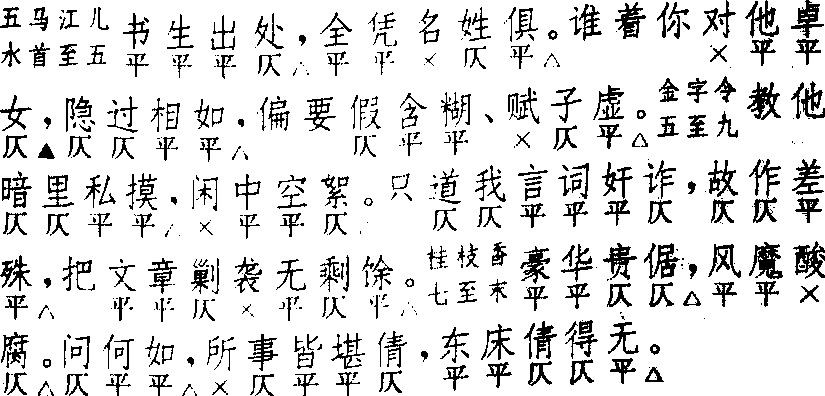 五马江儿 书生出处，全凭名姓俱。谁着你对他卓
水首至五 平平平仄△平平×仄平△×平平
女，隐过相如，偏要假含糊、赋子虚。金字令 教他
仄▲仄仄平平△仄平平×仄平△五至九
暗里私摸，闲中空絮。只道我言词奸诈，故作差
仄仄平平△×平平仄仄仄平平平仄仄仄平
殊，把文章剿袭无剩馀。桂枝香 豪华贵倨，风魔酸
平△平平仄×平仄平△七至末 平平仄仄△平平×
腐。问何如，所事皆堪倩，东床倩得无。
仄△仄平平△×仄平平仄平平仄仄平△